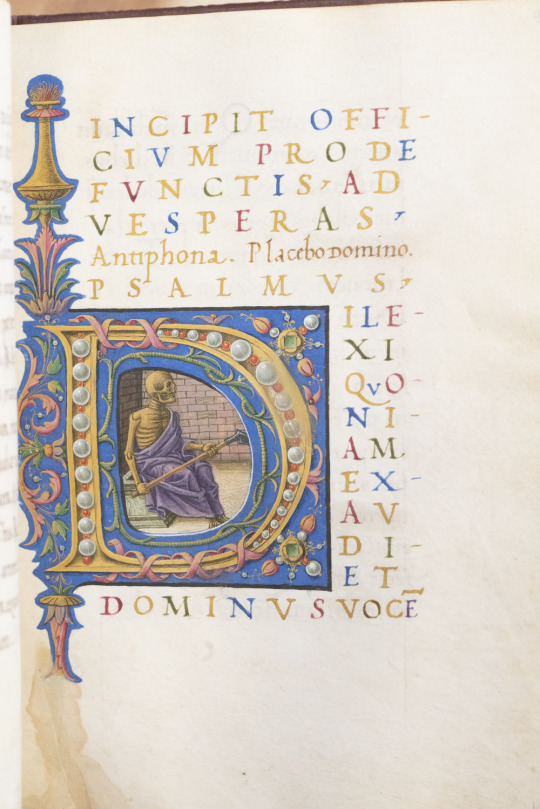 INCIPIT OFFI-
CIVM PRO DE
FVNCTIS, AD
VESPERAS,
Antiphona. Placebo DOMINO.
PSALMVS,
DILE-
XI
QvO-
NI-
AM.
EX-
AV
DI-
ET
DOMINVS VOCĒ